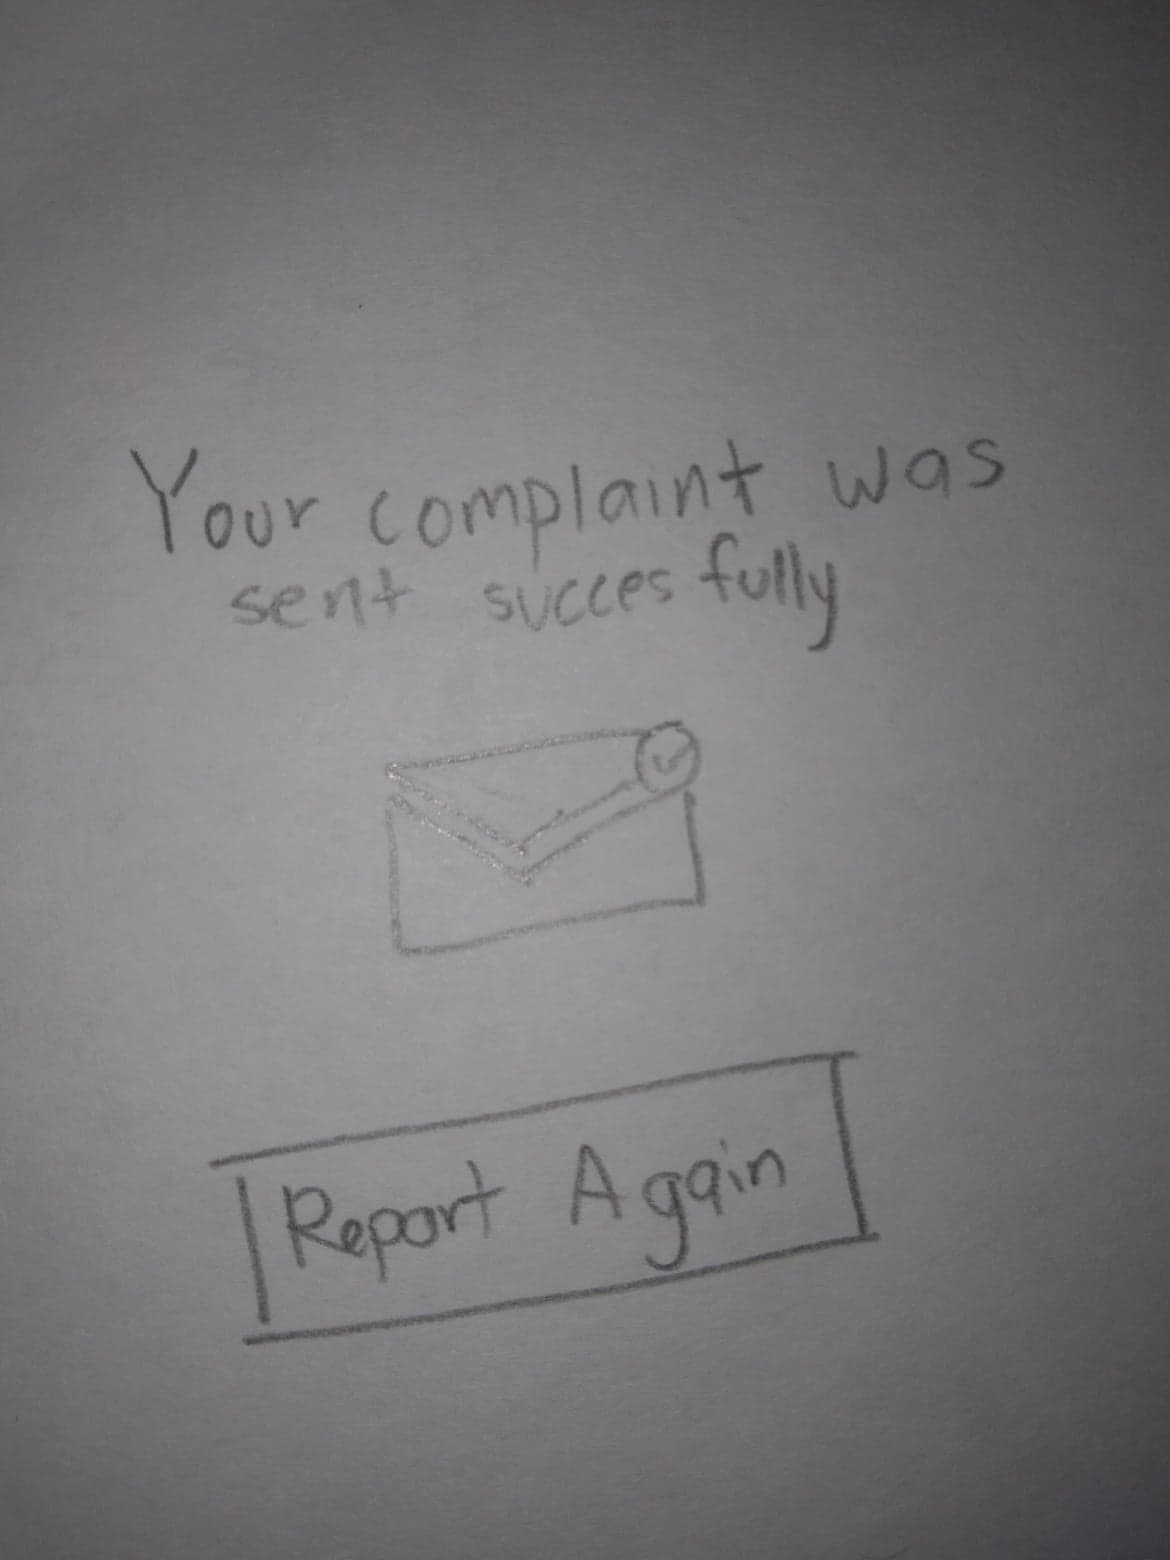 Your complaint was
sent succesfully
Report Again